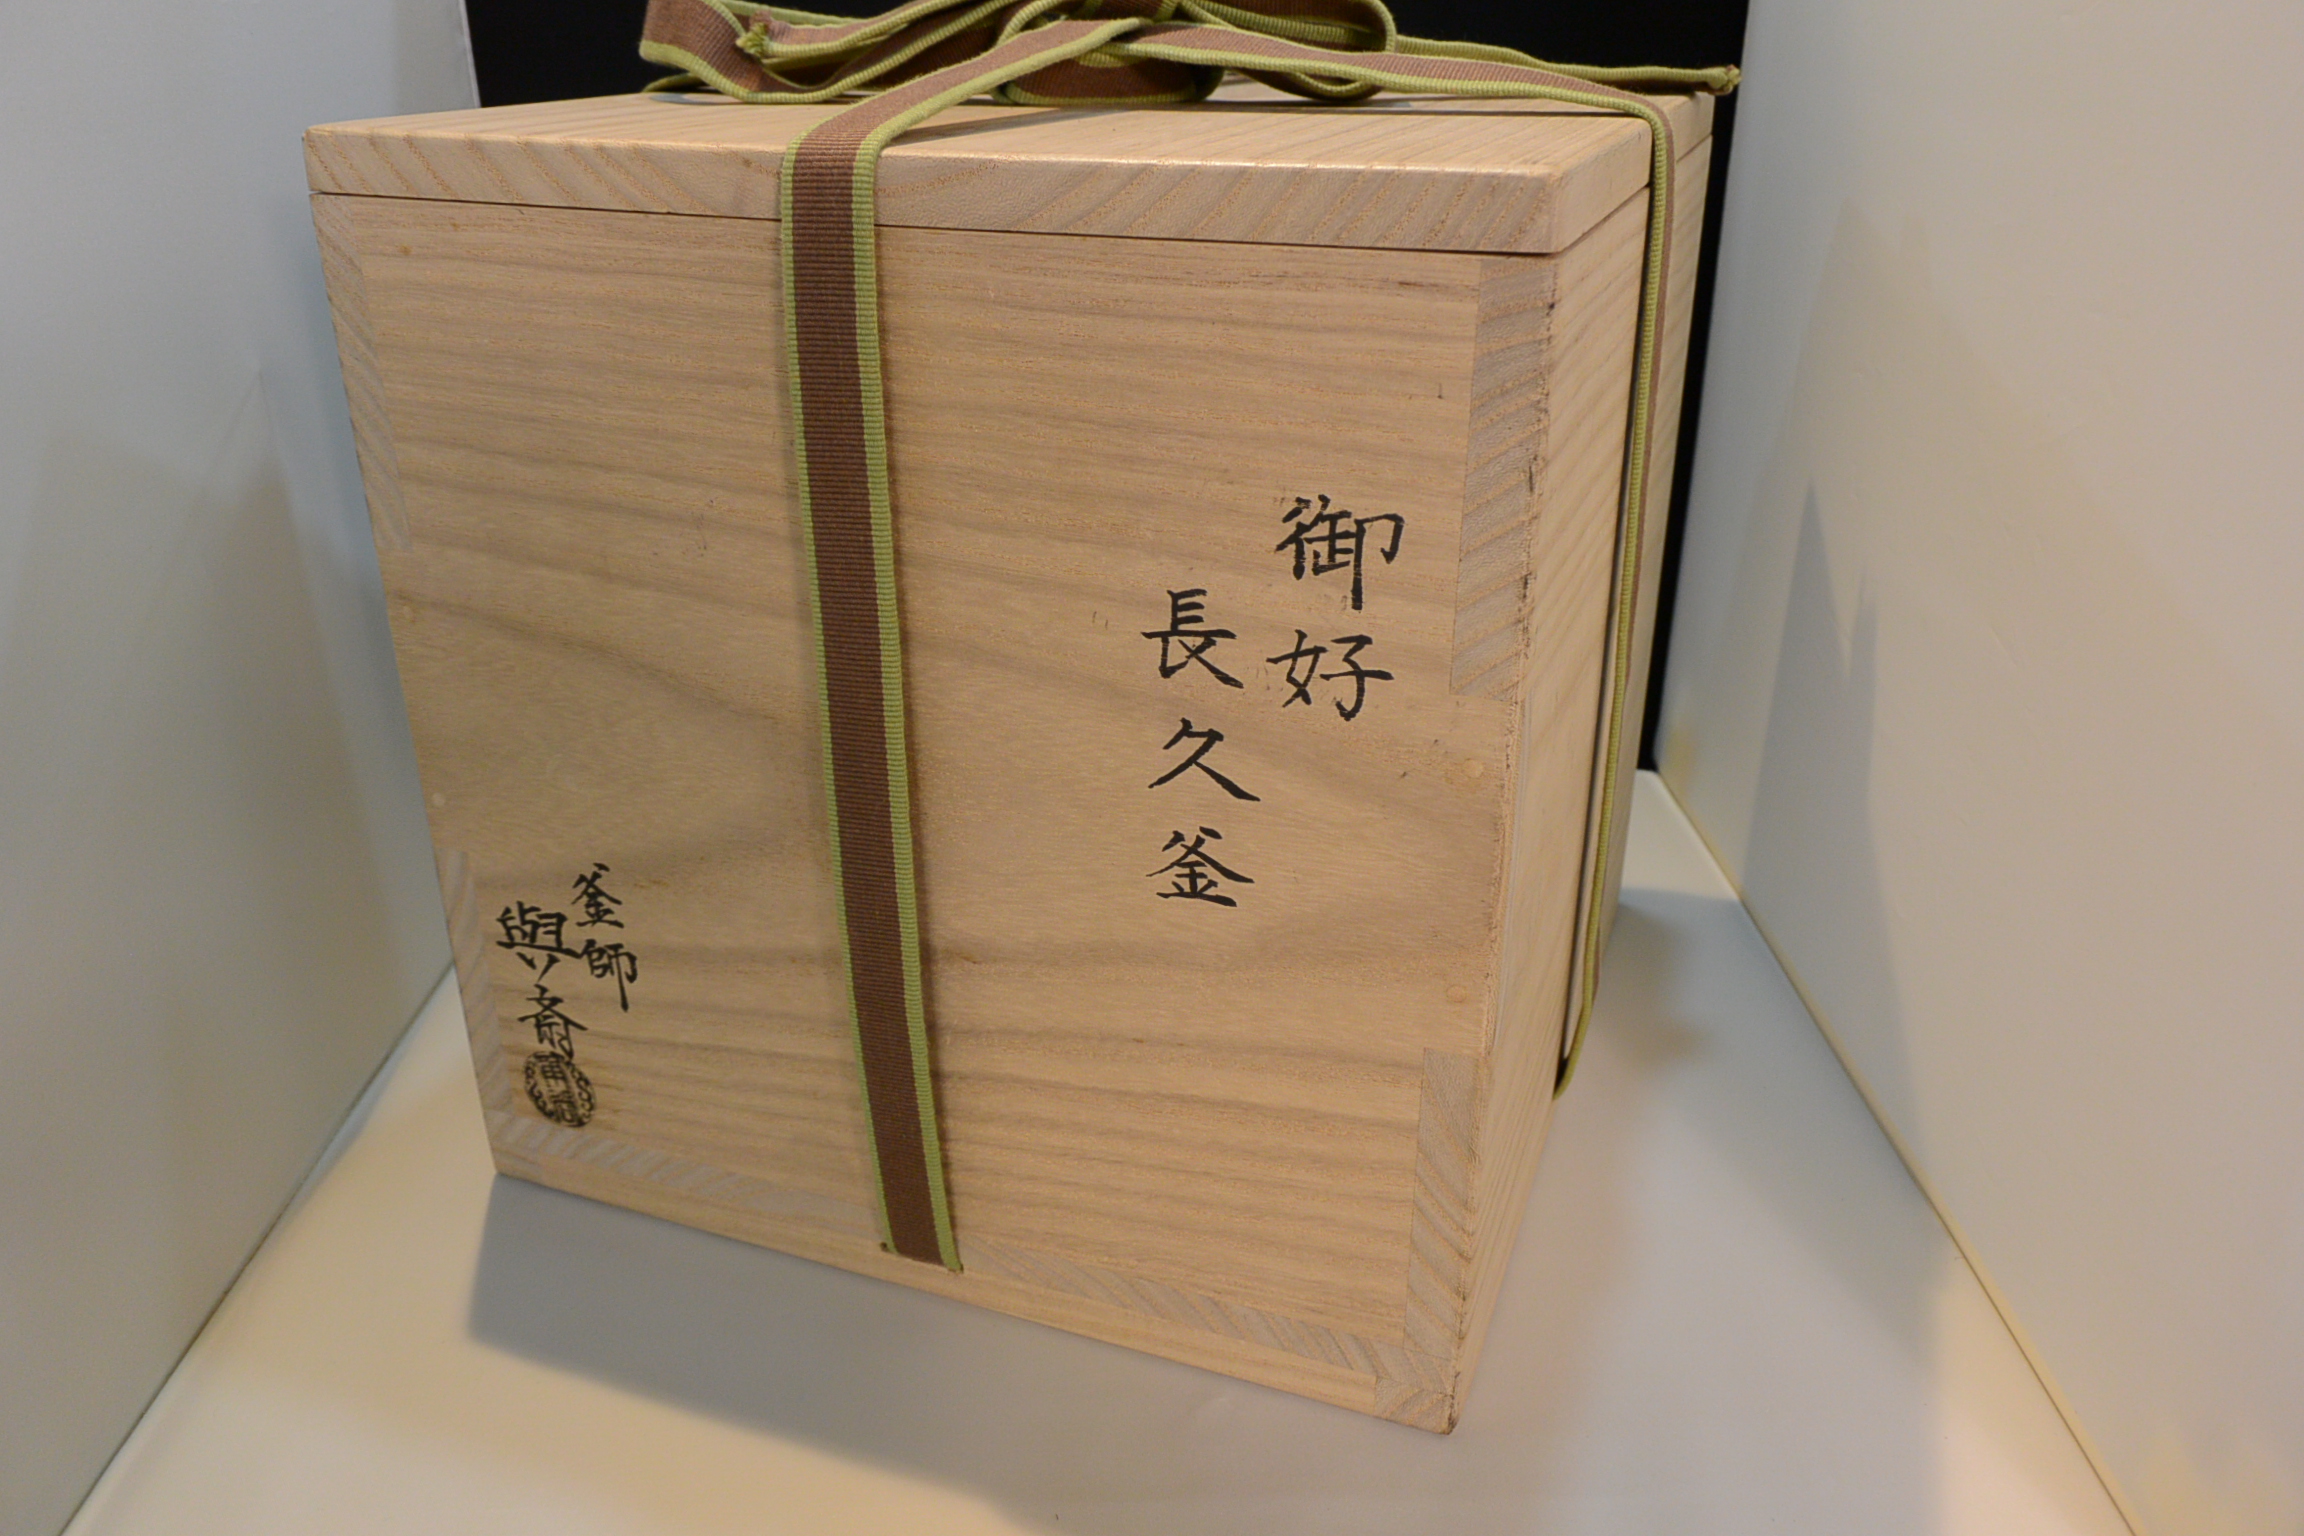 御好
長久釜
釜師
與斎